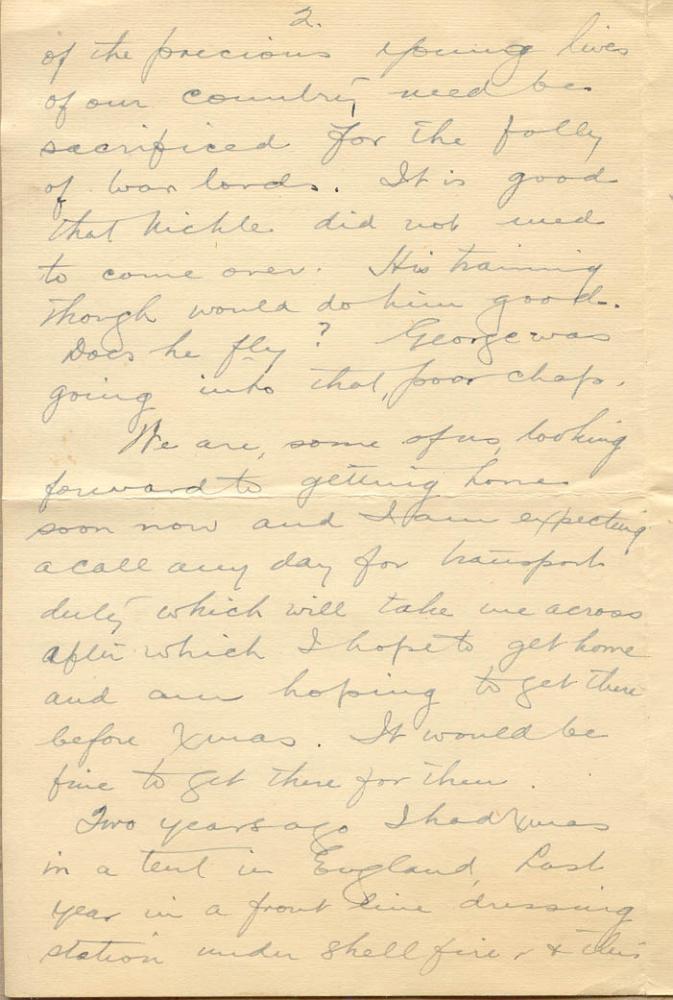 2.
of the precious young lives
of our country need be
sacrificed for the folly
of war lords. It is good
that Nickle did not need
to come over. His training
though would do him good.
Does he fly? George was
going into that, poor chap.
We are, some of us, looking
forward to getting home
soon now and I am expecting
a call any day for transport
duty which will take me across
after which I hope to get home
and am hoping to get there
before Xmas. It would be
fine to get there for then.
Two years ago I had Xmas
in a tent in England, Last
year in a front line dressing
station under shell fire, & this